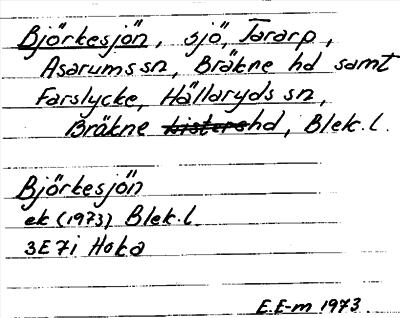 Björkesjön, sjö, Tararp,
Asarums sn, Bräkne hd samt
Farslycke, Hällaryds sn,
Bräkne hd, Blek. l.
Björkesjön
ek (1973) Blek. l.
3E7i Hoka
E.E-m 1973.